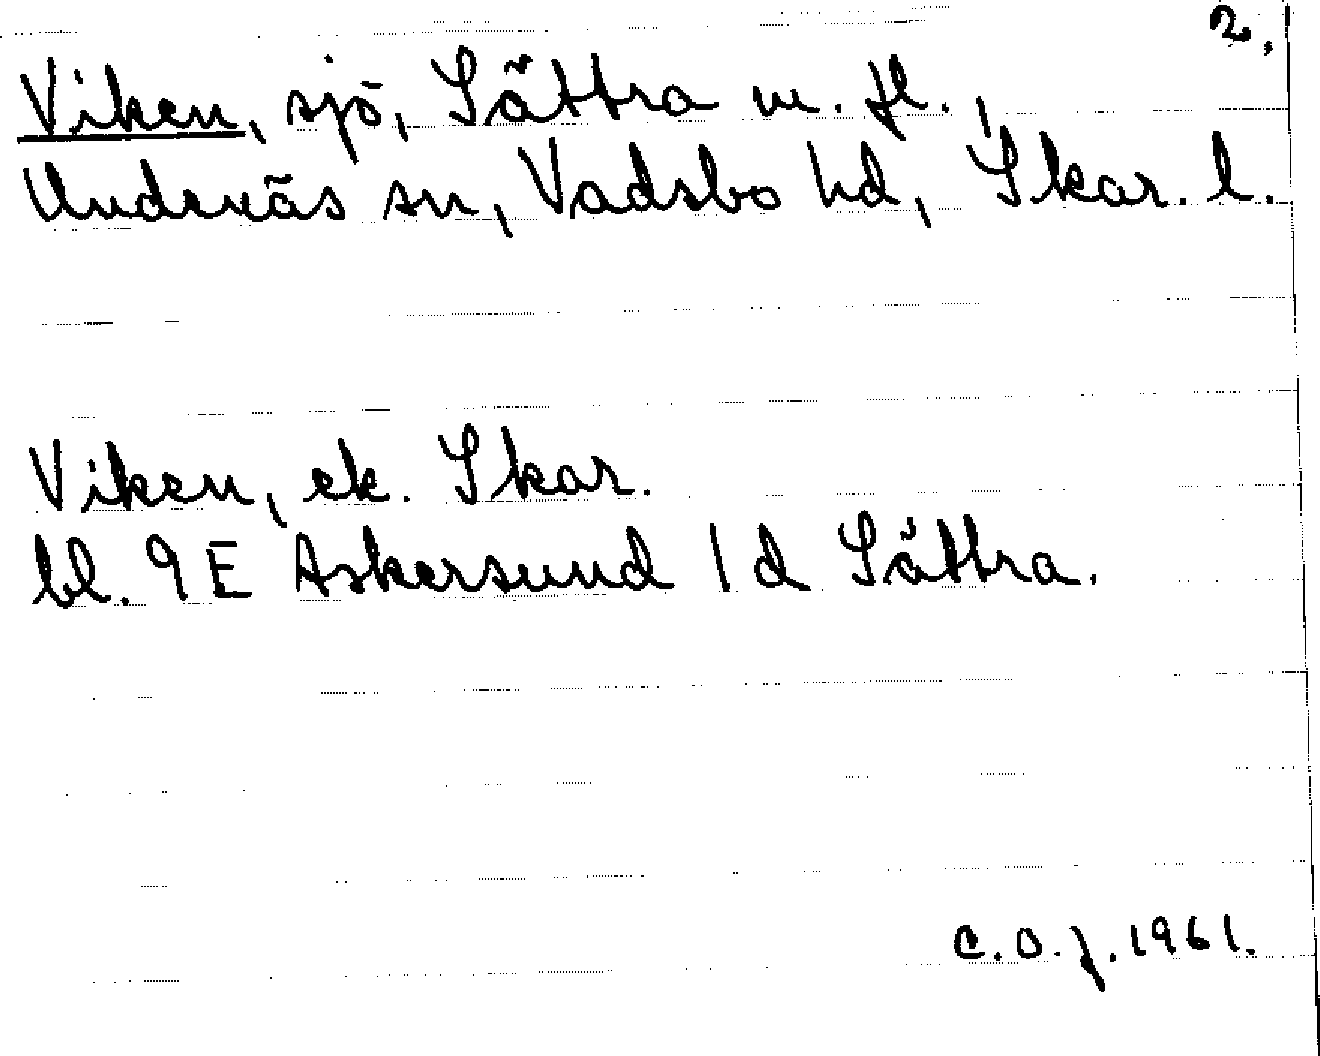 2.
Viken, sjö, Sättra m. fl.,
Undenäs sn, Vadsbo hd, Skar. l.
Viken, ek. Skar.
bl. 9E Askersund 1d Sättra.
C.O.J. 1961.